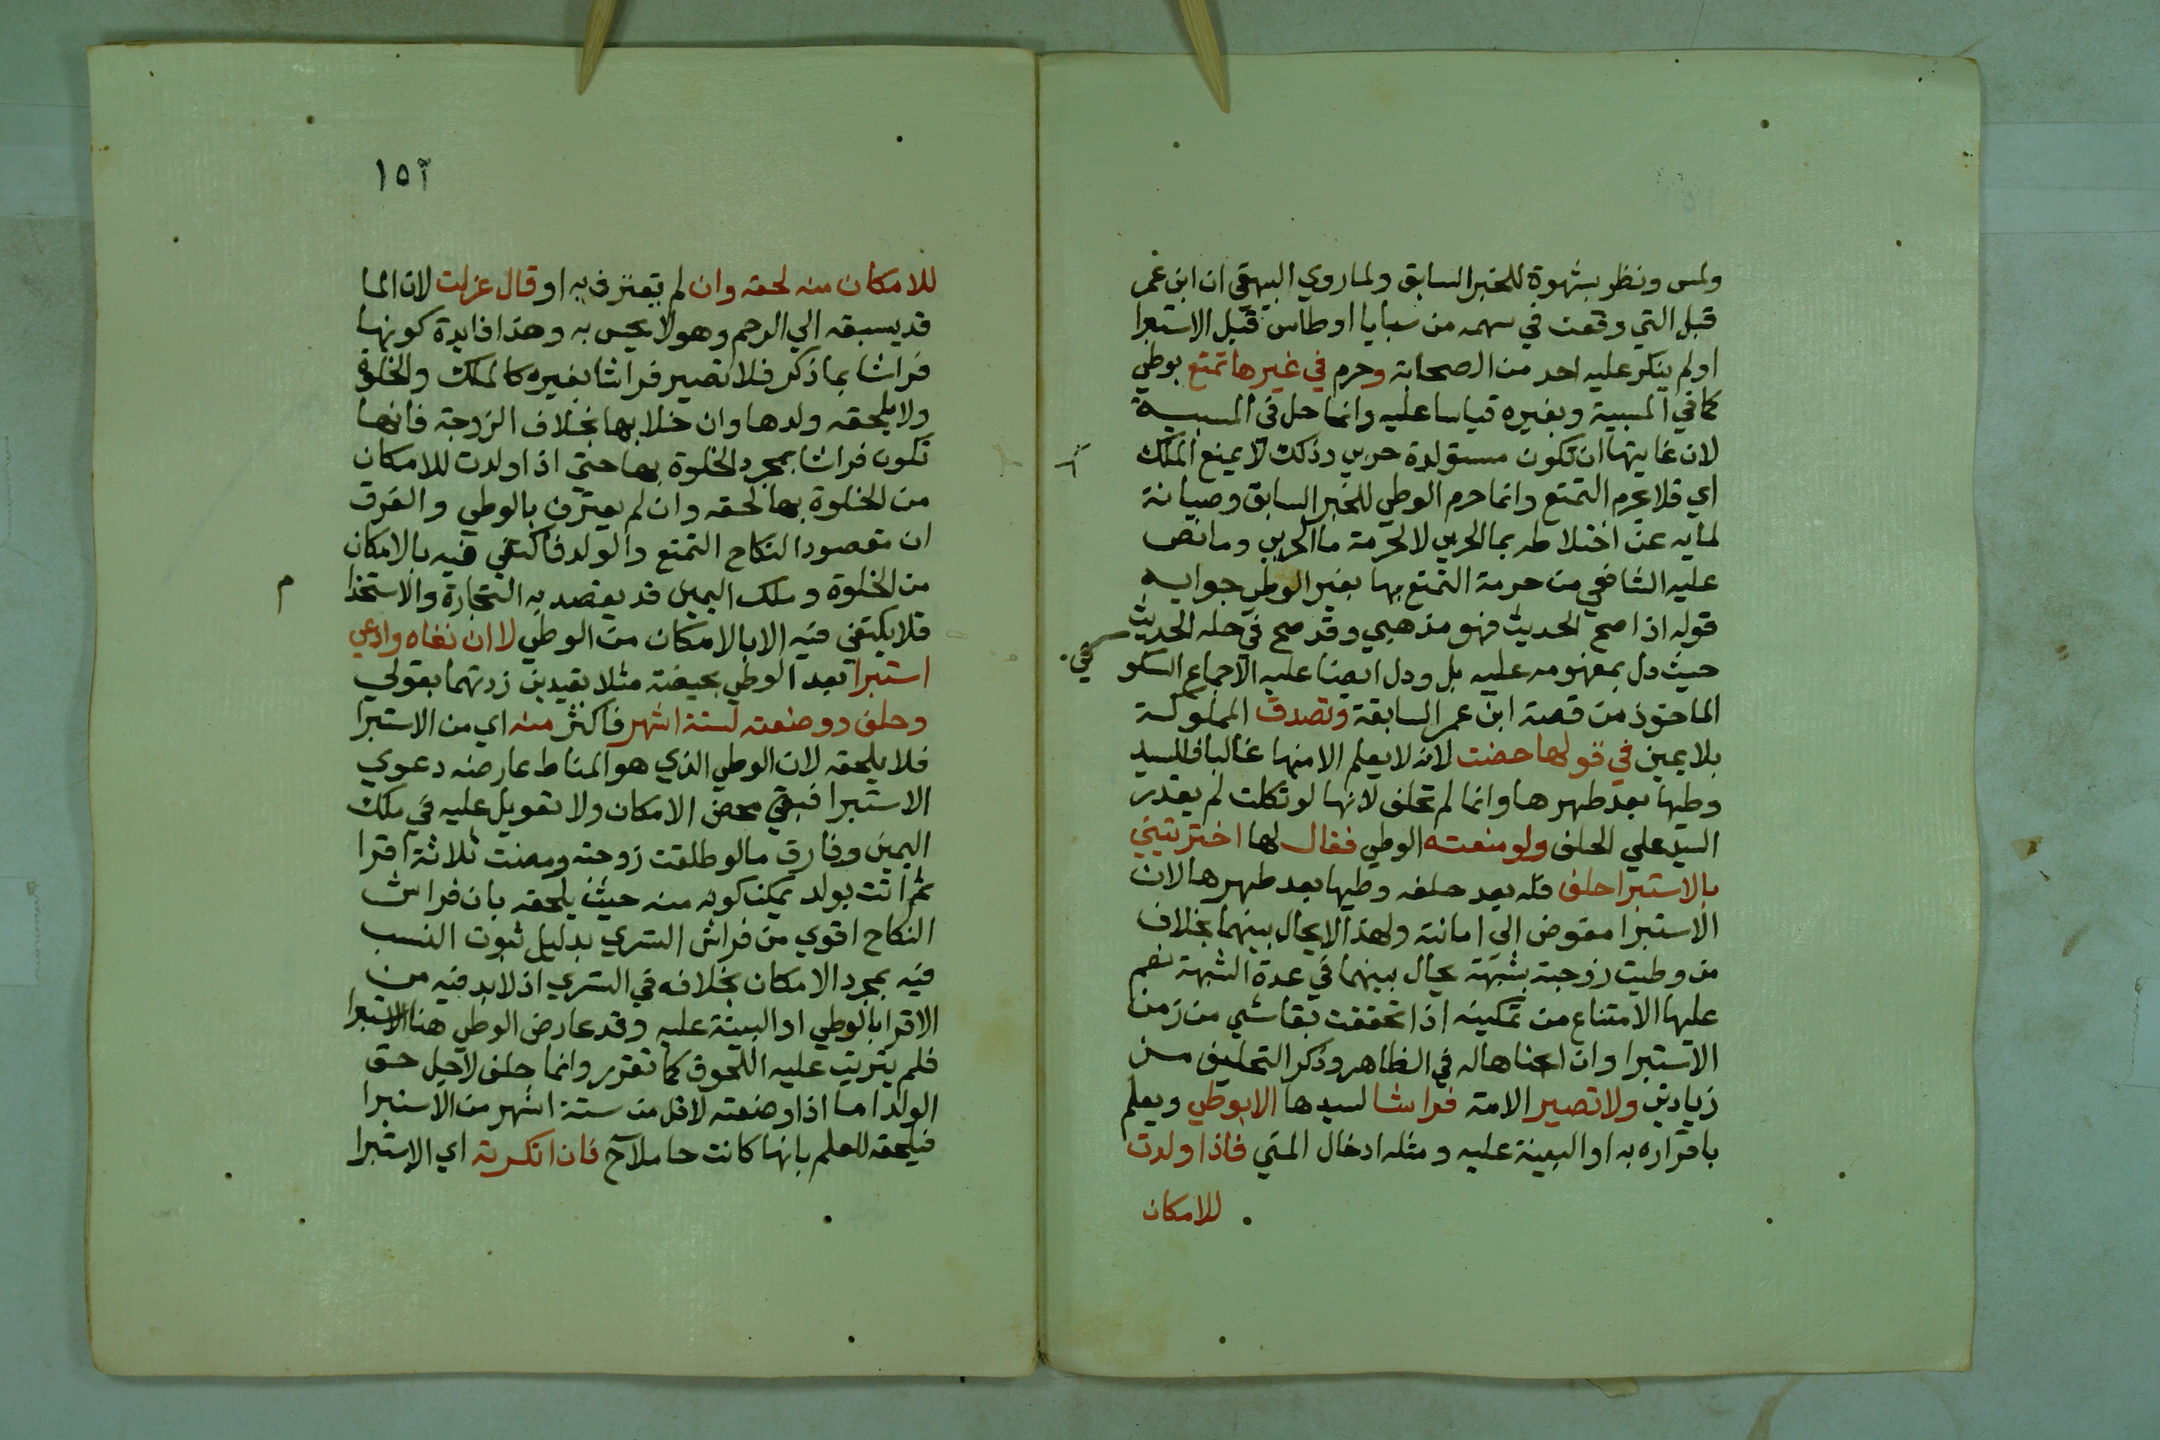 ولمس ونظر بشهوة للخبر السابق ولما روي البيهقي ان ابن عمر
قبل التي وقعت في سهمه من سبايا اوطاس قبل الاستبرا
اولم ينكر عليه احد من الصحابة وحرم في غيرها تمتع بوطي
كما في المسبية وبغيره قياسا عليه وانما حل في المسبية
لان غايتها ان تكون مستولدة حربي وذلك لا يمنع الملك
اي فلا يحرم التمتع وانما حرم الوطي للخبر السابق وصيانة
لمايه عن اختلاطه بما الحربي لا لحرمة ما الحربي وما نص
عليه الشافعي من حرمة التمتع بها بغير الوطي جوابه
قوله اذا صح الحديث فهو مذهبي وقد صح في حله الحديث
حيث دل بمفهومه عليه بل ودل ايضا عليه الاجماع السكو
تي
الماخوذ من قصة ابن عمر السابقة وتصدق المملوكة
بلا يمين في قولها حضت لانه لا يعلم الا منها غالبا فللسيد
وطيها بعد طهرها وانما لم تحلف لانها لو نكلت لم يقدر
السيد علي الحلف ولو منعته الوطي فقال لها اخبرتيني
بالاستبرا حلف فله بعد حلفه وطيها بعد طهرها لان
الاستبرا مفوض الى امانته ولهذا لا يحال بينهما بخلاف
من وطيت زوجته بشبهة يحال بينهما في عدة الشبهة نعم
عليها الامتناع من تمكينه اذا تحققت بقا شي من زمن
الاستبرا وان ابحناها له في الظاهر وذكر التحليف من
زيادتي ولا تصير الامة فراشا لسيدها الا بوطي ويعلم
باقراره به او البينة عليه ومثله ادخال المني فاذا ولدت
للامكان
١٥٢
للامكان منه لحقه وان لم يعترف به او قال عزلت لان الما
قد يسبقه الي الرحم وهو لا يحس به وهذا فايدة كونها
فراشا بما ذكر فلا تصير فراشا بغيره كالملك والخلوة
ولا يلحقه ولدها وان خلا بها بخلاف الزوجة فانها
تكون فراشا بمجرد الخلوة بها حتي اذا ولدت للامكان
من الخلوة بها لحقه وان لم يعترف بالوطي والفرق
ان مقصود النكاح التمتع والولد فاكتفي فيه بالامكان
من الخلوة وملك اليمين قد يقصد به التجارة والاستخدا
م
فلا يكتفي فيه الا بالامكان من الوطي لا ان نفاه وادعي
استبرا بعد الوطي بحيضة مثلا بقيدين زدتهما بقولي
وحلف ووضعته لستة اشهر فاكثر منه اي من الاستبرا
فلا يلحقه لان الوطي الذي هو المناط عارضه دعوي
الاستبرا فبقي محض الامكان ولا تعويل عليه في ملك
اليمين وفارق ما لو طلقت زوجته ومضت ثلاثة اقرا
ثم اتت بولد يمكن كونه منه حيث يلحقه بان فراش
النكاح اقوي من فراش التسري بدليل ثبوت النسب
فيه بمجرد الامكان بخلافه في التسري اذ لا بد فيه من
الاقرا بالوطي او البينة عليه وقد عارض الوطي هنا الاستبرا
فلم يترتب عليه اللحوق كما تقرر وانما حلف لاجل حق
الولد اما اذا وضعته لاقل من ستة اشهر من الاستبرا
فيلحقه للعلم بانها كانت حاملا ح فان انكرته اي الاستبرا